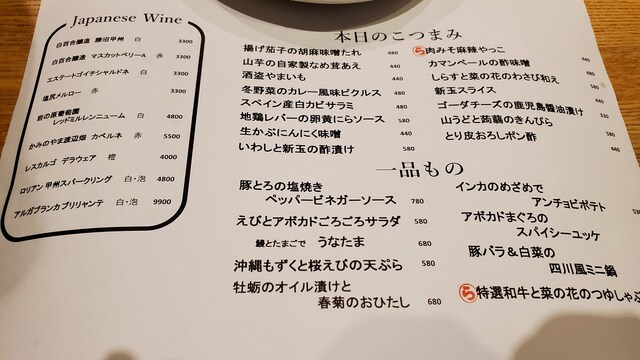 Japanese Wine
白百合醸造 勝沼甲州 白 3300
白百合醸造 マスカットベリーA 赤 3300
エステートゴイチシャルドネ 白 3300
塩尻メルロー 赤 3300
岩の原葡萄園
レッドミルレンニューム 白 4800
かみのやま渡辺畑 カベルネ 赤 5500
レスカルゴ デラウェア 橙 4000
ロリアン 甲州スパークリング 白・泡 4800
アルガブランカ ブリリャンテ 白・泡 9900
本日のこつまみ
揚げ茄子の胡麻味噌たれ 480
山芋の自家製なめ茸あえ 440
酒盗やまいも 440
冬野菜のカレー風味ピクルス 480
スペイン産白カビサラミ 480
地鶏レバーの卵黄にらソース 580
生かぶにんにく味噌 440
いわしと新玉の酢漬け 580
ら 肉みそ麻辣やっこ
カマンベールの酢味噌 440
しらすと菜の花のわさび和え 580
新玉スライス 440
ゴーダチーズの鹿児島醤油漬け
山うどと蒟蒻のきんぴら 440
とり皮おろしポン酢
一品もの
豚とろの塩焼き
ペッパービネガーソース 780
えびとアボカドごろごろサラダ 580
鰻とたまごで うなたま 680
沖縄もずくと桜えびの天ぷら 580
牡蛎のオイル漬けと
春菊のおひたし 680
インカのめざめで
アンチョビポテト
アボカドまぐろの
スパイシーユッケ
豚バラ＆白菜の
四川風ミニ鍋
ら 特選和牛と菜の花のつゆしゃぶ